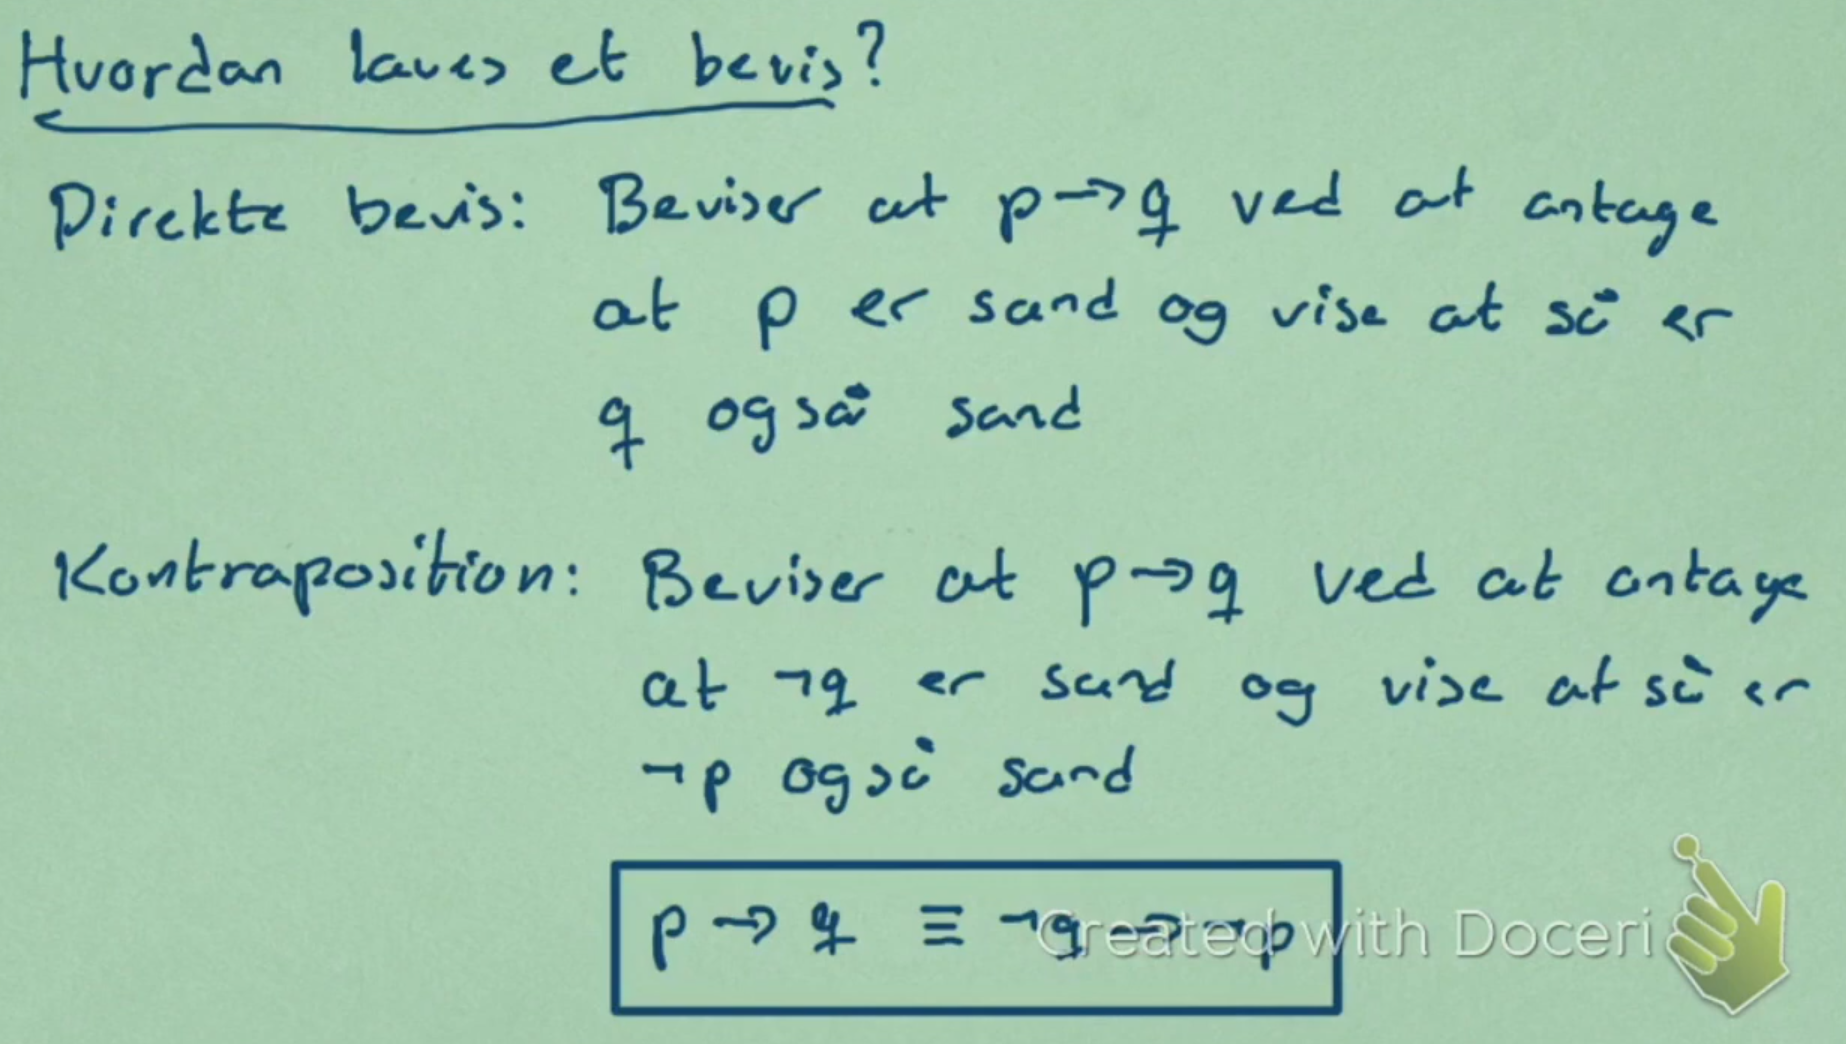 Hvordan laves et bevis?
Direkte bevis: Beviser at p→q ved at antage
at p er sand og vise at så er
q også sand
Kontraposition: Beviser at p→q ved at antage
at ¬q er sand og vise at så er
¬p også sand
p → q ≡ ¬q → ¬p
Created with Doceri